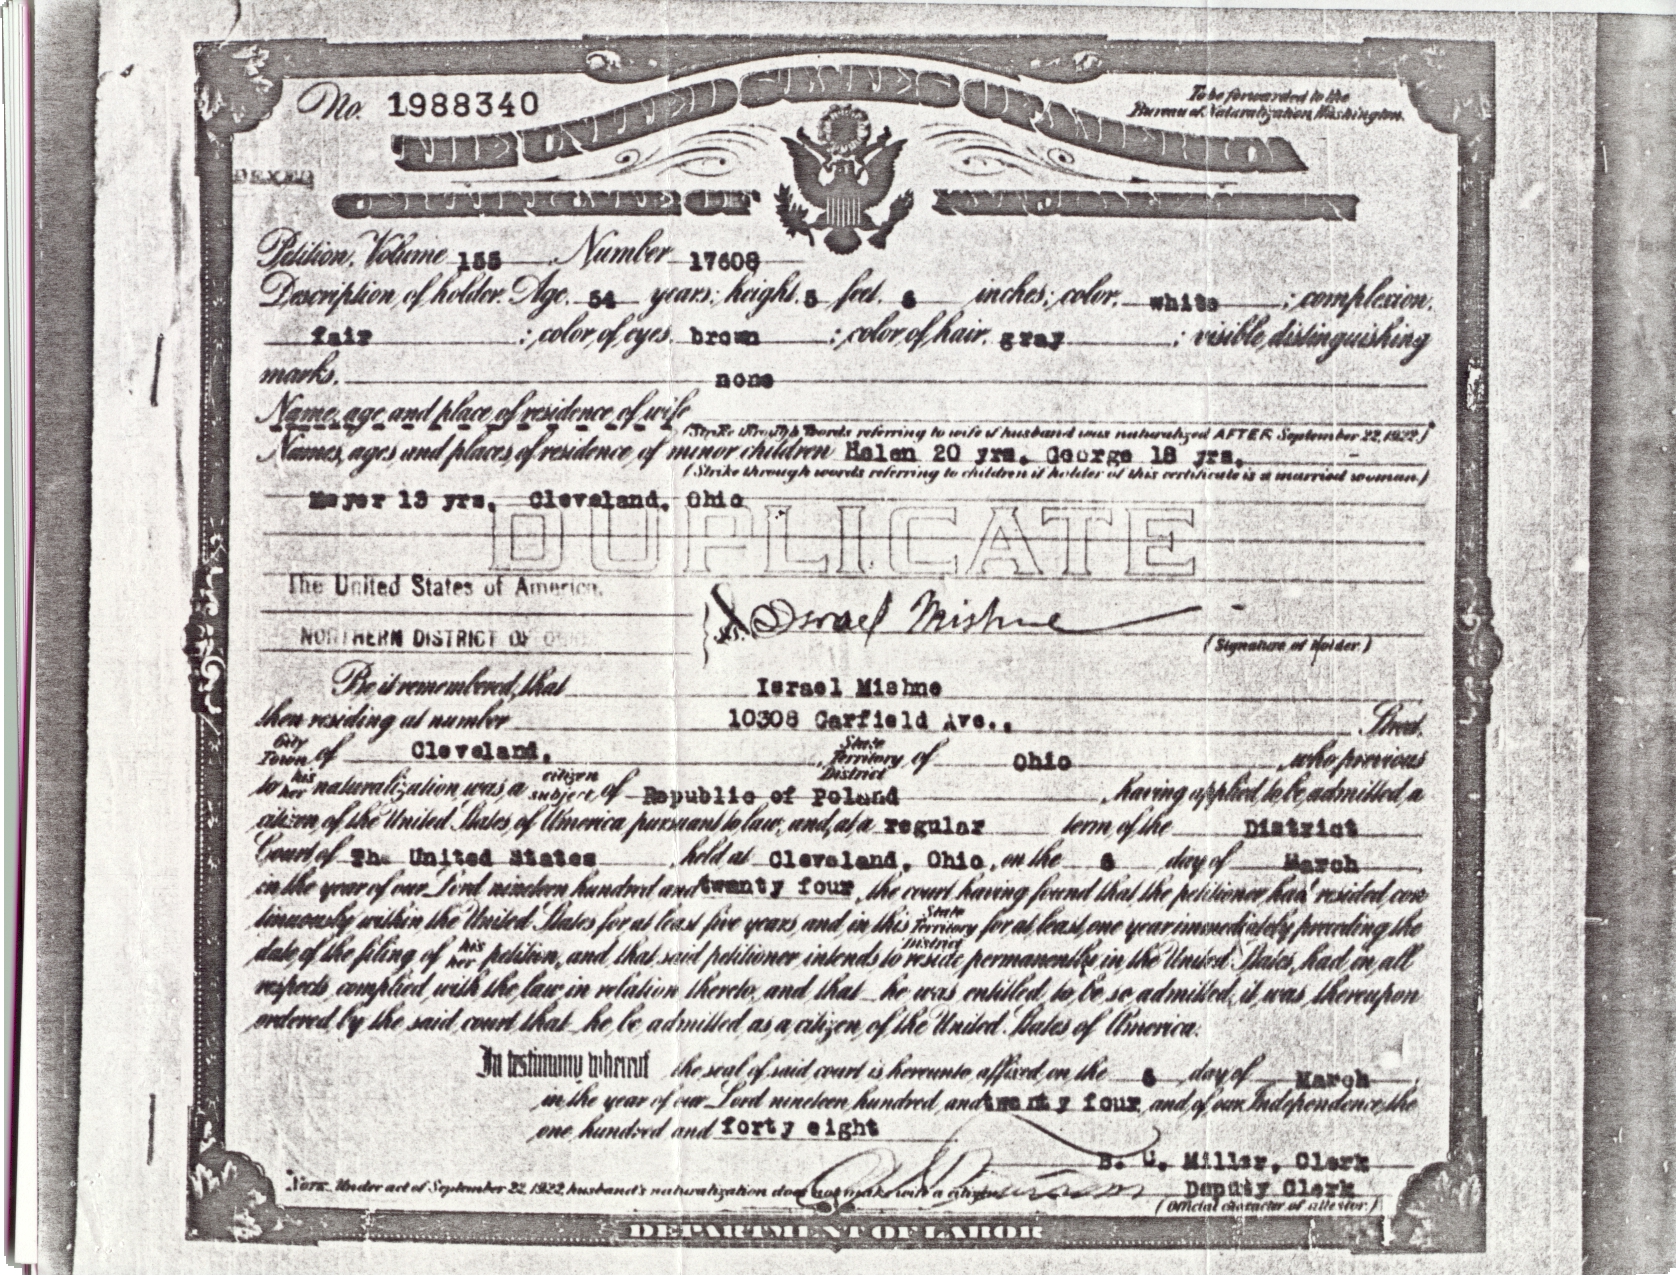 No. 1988340
To be forwarded to the
Bureau of Naturalization, Washington.
THE UNITED STATES OF AMERICA
DEXED
CERTIFICATE OF NATURALIZATION
Petition, Volume 155 Number 17608
Description of holder. Age, 54 years; height, 5 feet, 6 inches; color, white ; complexion,
fair ; color of eyes, brown ; color of hair, gray ; visible distinguishing
marks, none
Name, age and place of residence of wife
(Strike through words referring to wife if husband was naturalized AFTER September 22, 1922.)*
Names, ages and places of residence of minor children Helen 20 yrs, George 18 yrs,
(Strike through words referring to children if holder of this certificate is a married woman.)
Meyer 13 yrs, Cleveland, Ohio
DUPLICATE
The United States of America,
NORTHERN DISTRICT OF OHIO
} ss. Israel Mishne
(Signature of Holder.)
Be it remembered, that Israel Mishne
then residing at number 10308 Garfield Ave., Street,
City Town of Cleveland, State Territory District of Ohio , who previous
to his her naturalization was a citizen subject of Republic of Poland , having applied to be admitted a
citizen of the United States of America pursuant to law, and, at a regular term of the District
Court of The United States , held at Cleveland, Ohio, on the 6 day of March
in the year of our Lord nineteen hundred and twenty four, the court having found that the petitioner had resided con
tinuously within the United States for at least five years and in this State Territory District for at least one year immediately preceding the
date of the filing of his her petition, and that said petitioner intends to reside permanently in the United States, had in all
respects complied with the law in relation thereto, and that he was entitled to be so admitted, it was thereupon
ordered by the said court that he be admitted as a citizen of the United States of America.
In testimony whereof the seal of said court is hereunto affixed on the 6 day of March
in the year of our Lord nineteen hundred and twenty four, and of our Independence the
one hundred and forty eight
B. C. Miller, Clerk
Deputy Clerk
(Official character of attestor.)
*NOTE. Under act of September 22, 1922, husband's naturalization does not make wife a citizen
DEPARTMENT OF LABOR